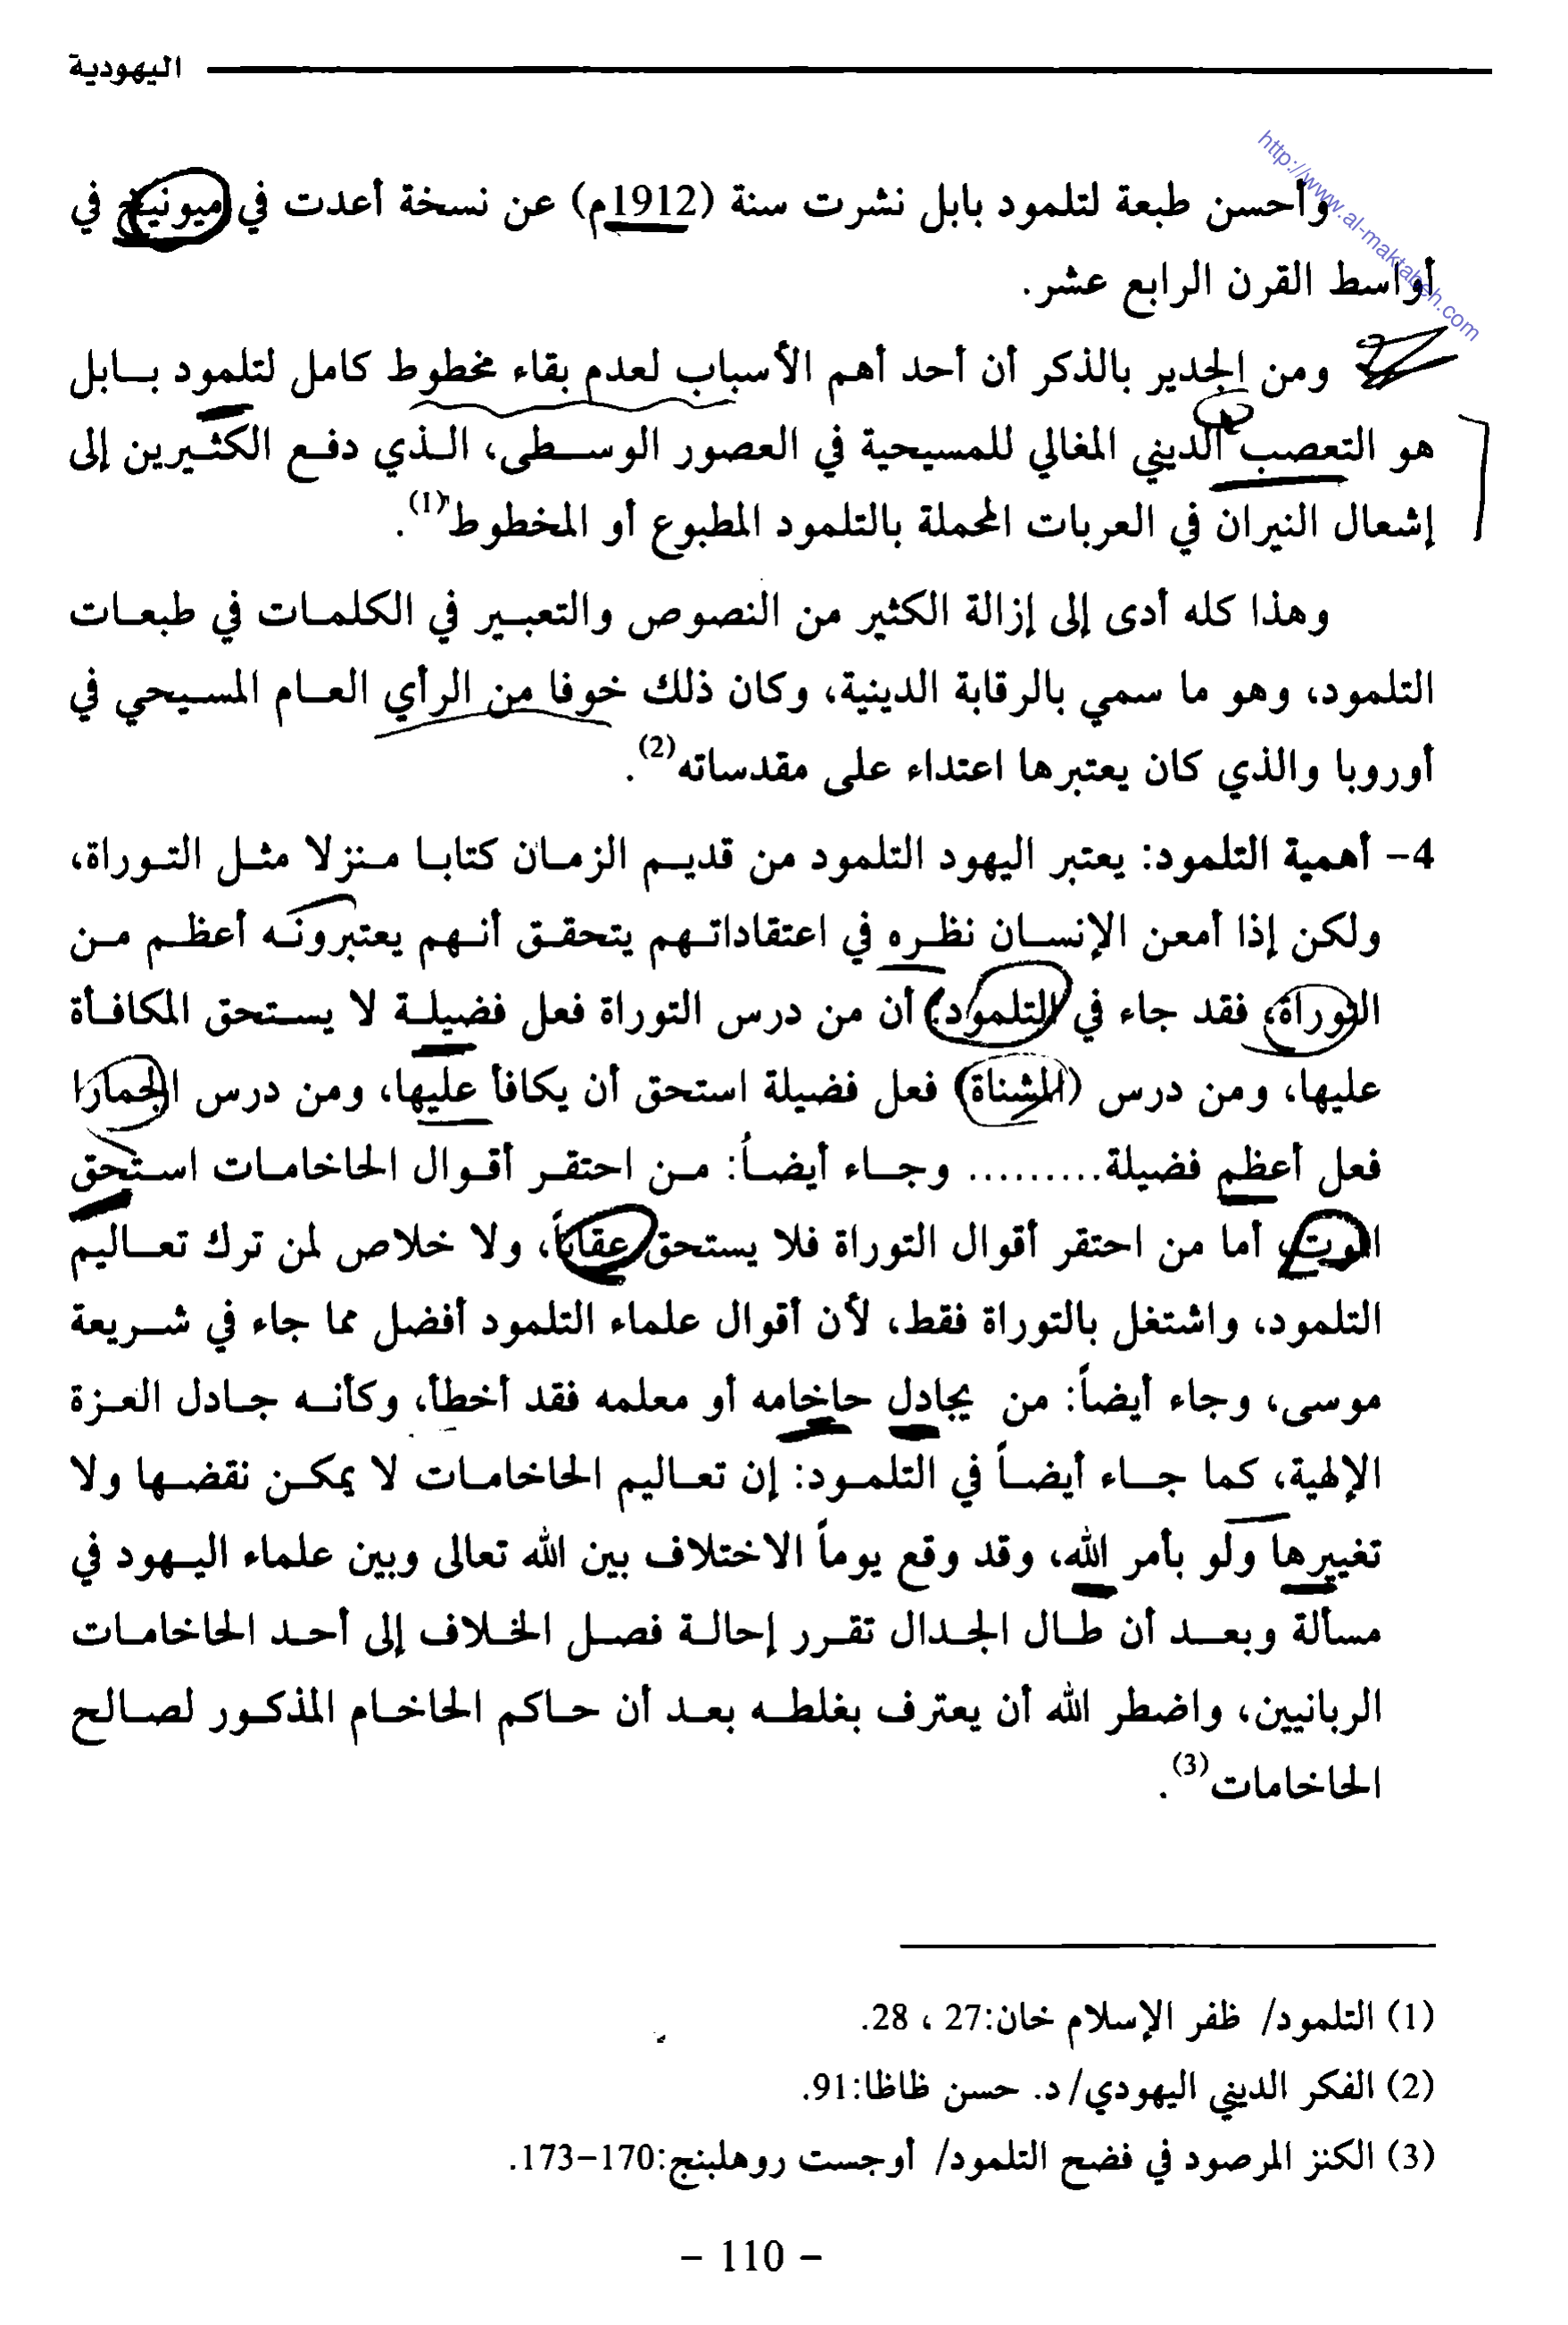 اليهودية
http://www.al-maktabeh.com
وأحسن طبعة لتلمود بابل نشرت سنة (1912م) عن نسخة أعدت في ميونيخ في
أواسط القرن الرابع عشر.
ومن الجدير بالذكر أن أحد أهم الأسباب لعدم بقاء مخطوط كامل لتلمود بابل
هو التعصب الديني المغالي للمسيحية في العصور الوسطى، الذي دفع الكثيرين إلى
إشعال النيران في العربات المحملة بالتلمود المطبوع أو المخطوط(1).
وهذا كله أدى إلى إزالة الكثير من النصوص والتعبير في الكلمات في طبعات
التلمود، وهو ما سمي بالرقابة الدينية، وكان ذلك خوفا من الرأي العام المسيحي في
أوروبا والذي كان يعتبرها اعتداء على مقدساته(2).
4- أهمية التلمود: يعتبر اليهود التلمود من قديم الزمان كتابا منزلا مثل التوراة،
ولكن إذا أمعن الإنسان نظره في اعتقاداتهم يتحقق أنهم يعتبرونه أعظم من
التوراة، فقد جاء في (التلمود) أن من درس التوراة فعل فضيلة لا يستحق المكافأة
عليها، ومن درس (المشناة) فعل فضيلة استحق أن يكافأ عليها، ومن درس الجمارا
فعل أعظم فضيلة......... وجاء أيضاً: من احتقر أقوال الحاخامات استحق
الموت، أما من احتقر أقوال التوراة فلا يستحق عقاباً، ولا خلاص لمن ترك تعاليم
التلمود، واشتغل بالتوراة فقط، لأن أقوال علماء التلمود أفضل مما جاء في شريعة
موسى، وجاء أيضاً: من يجادل حاخامه أو معلمه فقد أخطأ، وكأنه جادل العزة
الإلهية، كما جاء أيضاً في التلمود: إن تعاليم الحاخامات لا يمكن نقضها ولا
تغييرها ولو بأمر الله، وقد وقع يوماً الاختلاف بين الله تعالى وبين علماء اليهود في
مسألة وبعد أن طال الجدال تقرر إحالة فصل الخلاف إلى أحد الحاخامات
الربانيين، واضطر الله أن يعترف بغلطه بعد أن حاكم الحاخام المذكور لصالح
الحاخامات(3).
(1) التلمود/ ظفر الإسلام خان:27 ، 28.
(2) الفكر الديني اليهودي/ د. حسن ظاظا:91.
(3) الكنز المرصود في فضح التلمود/ أوجست روهلبنج:170-173.
- 110 -